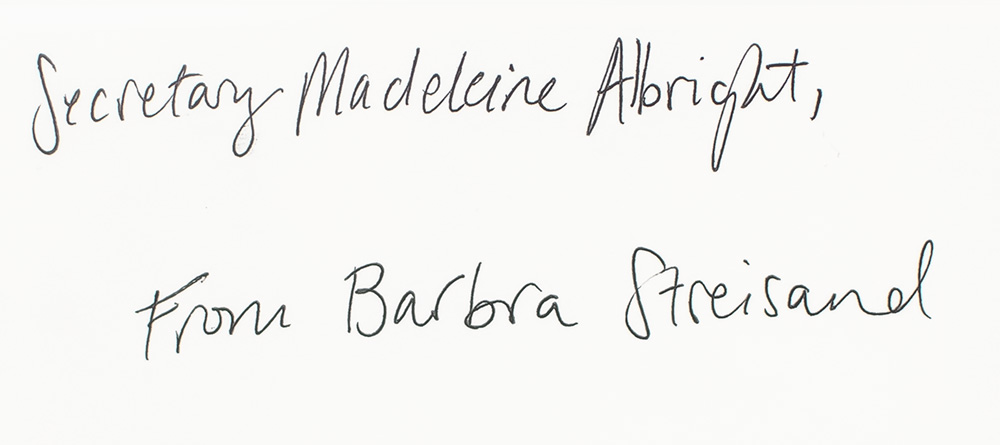 Secretary Madeleine Albright,
From Barbra Streisand